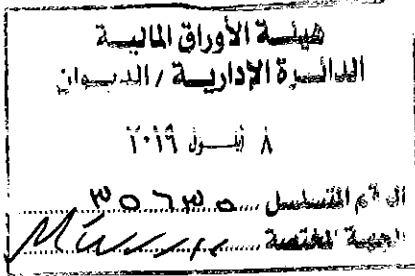 هيئة الأوراق المالية
الدائرة الإدارية / الديوان
٨ أيلول ٢٠١٩
الرقم المتسلسل ٣٥٦٣٥
الجهة المختصة